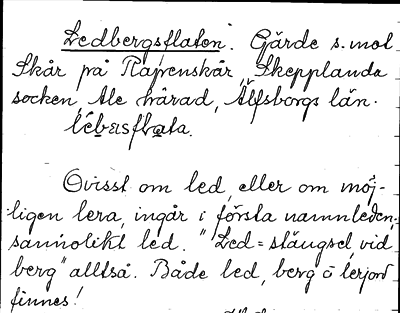 Ledbergsflaten. Gärde s. mot
Skår på Rapenskår, Skepplanda
socken, Ale härad, Älfsborgs län.
lèbarsflata.
Ovisst om led, eller om möj-
ligen lera, ingår i första namnleden,
sannolikt led. "Led = stängsel vid
berg" alltså. Både led, berg o lerjord
finnes!